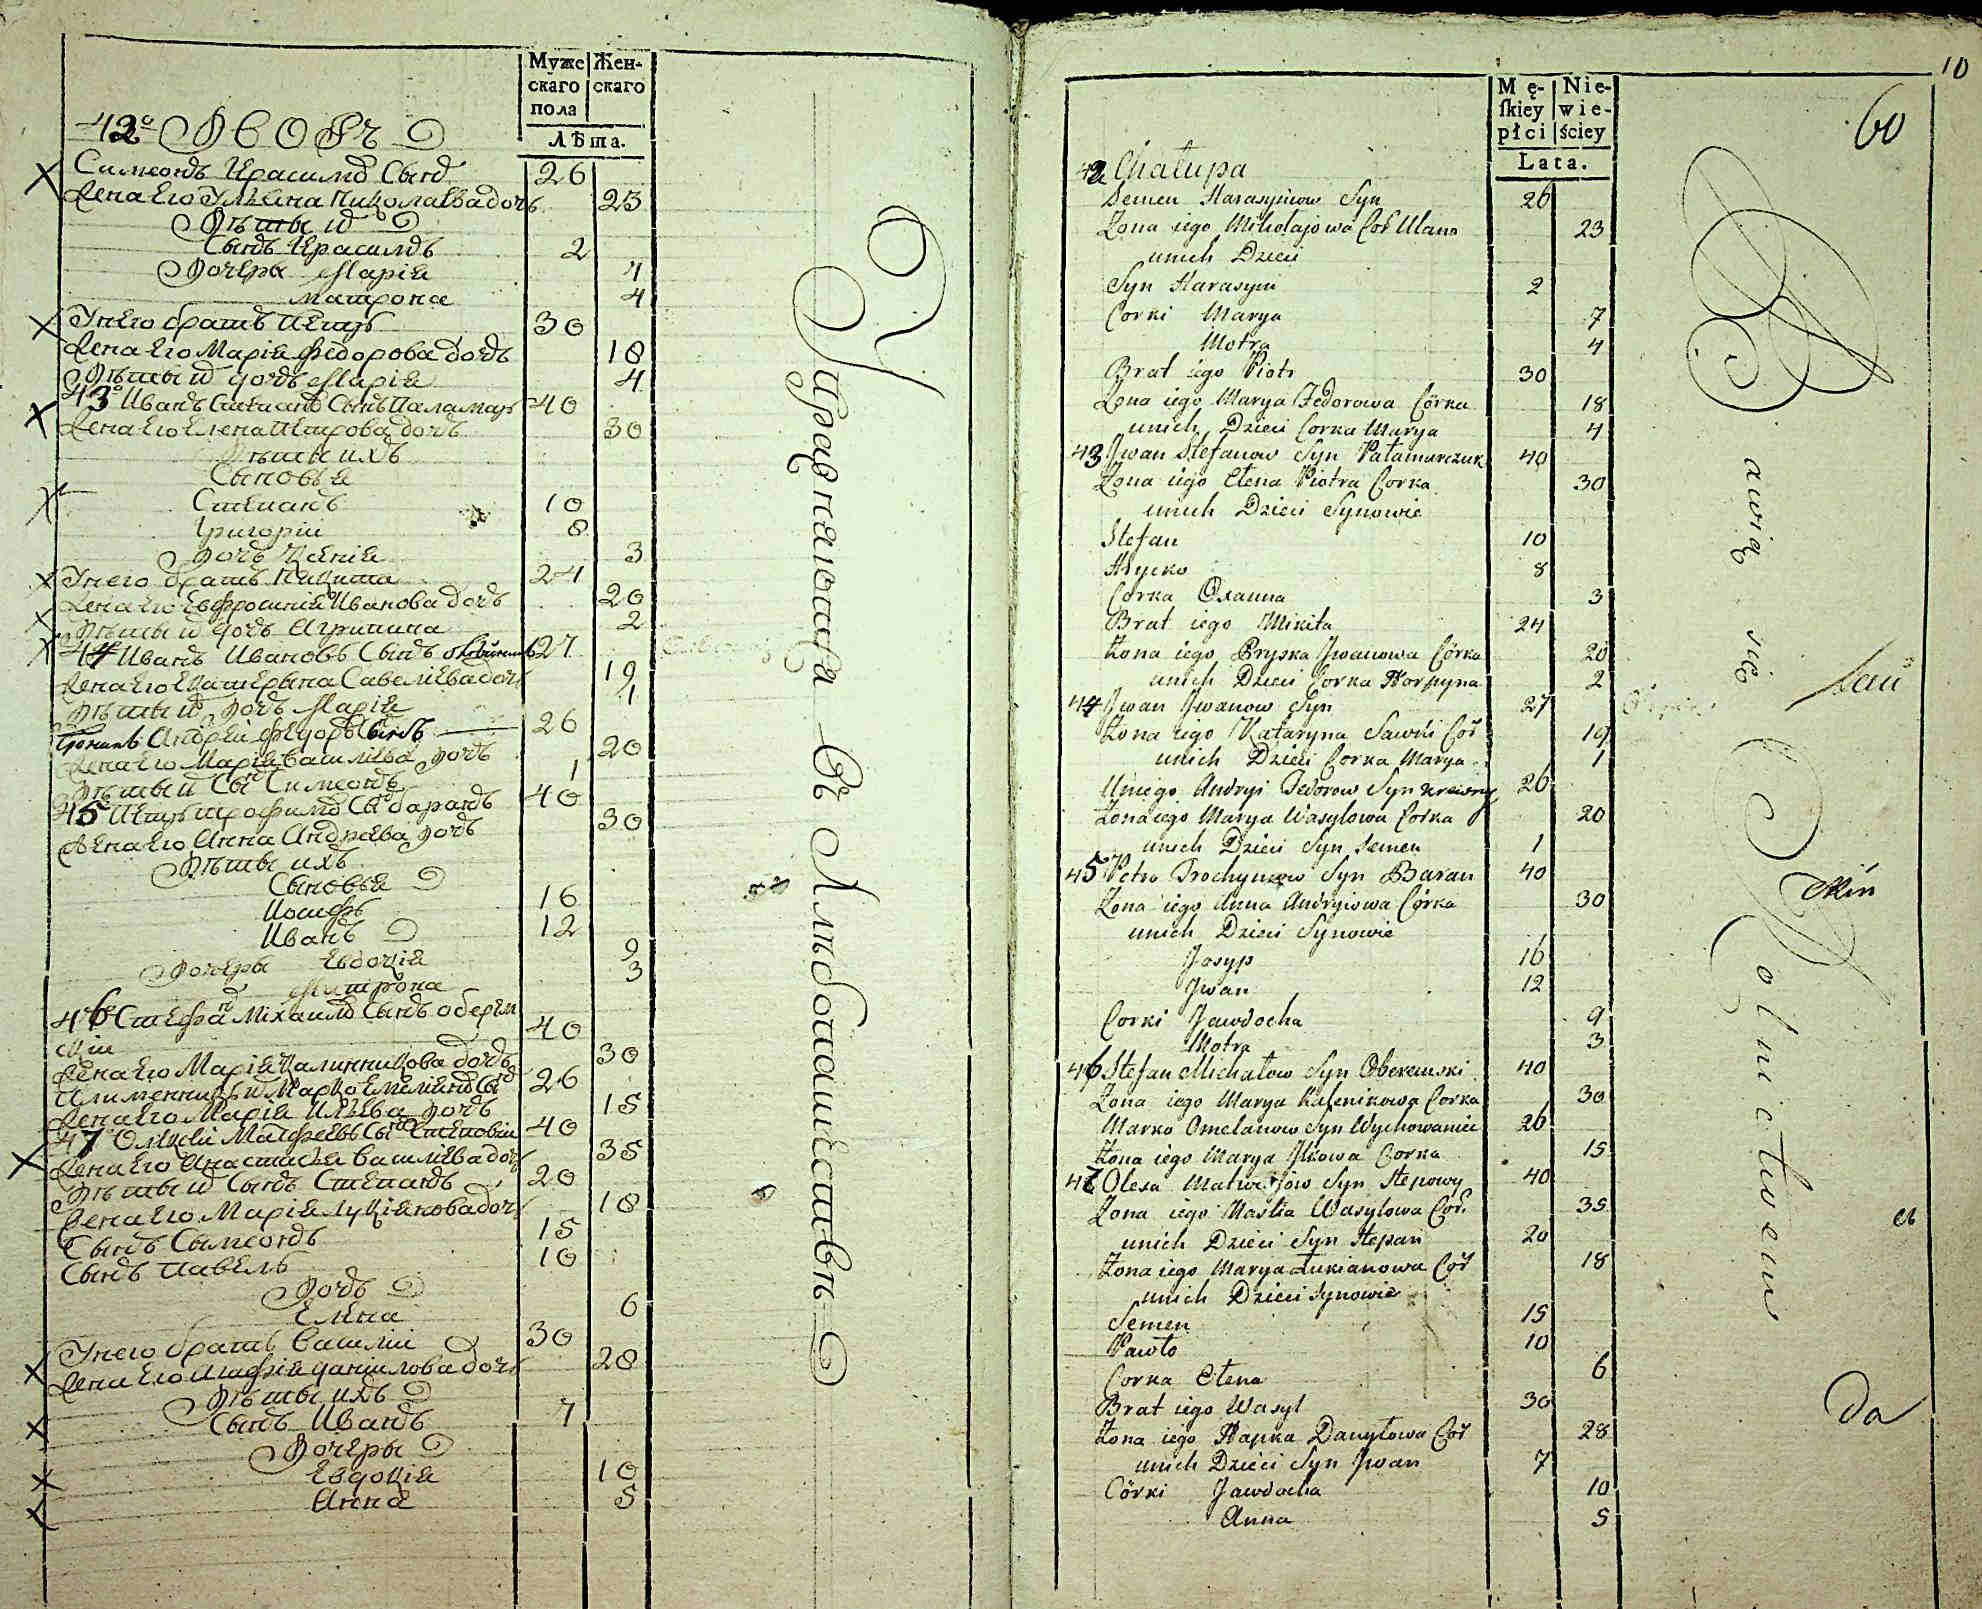 Муже Жен-
скаго скаго
пола
Лѣта.
42о Дворъ
Симеонъ Герасимов Сынъ 26
Жена Его Ульяна Николаева дочь 23
Дѣти их
Сынъ Герасимъ 2
Дочери Марія 7
Матрона 4
У него братъ Петръ 30
Жена Его Марія Федорова дочь 18
Дѣти их дочь Марія 4
43о Иванъ Степанов Сынъ Паламар 40
Жена Его Елена Петрова дочь 30
Дѣти ихъ
Сыновья
Степанъ 10
Григорій 8
Дочь Ксенія 3
У него братъ Никита 24
Жена Его Евфросинія Иванова дочь 20
Дѣти их дочь Агрипина 2
44 Иванъ Ивановъ Сынъ 27
Жена Его Екатерина Савелиева дочь 19
Дѣти их дочь Марія 1
Андрей Федоръ Сынъ 26
Жена Его Марія Василиева дочь 20
Дѣти их Сынъ Симеонъ 1
45о Петръ Трофимов Сынъ баранъ 40
Жена Его Анна Андреева дочь 30
Дѣти ихъ
Сыновья
Иосифъ 16
Иванъ 12
Дочери Евдокія 9
Матрона 3
46о Стефанъ Міхаилов Сынъ оберем 40
скій
Жена Его Марія Калинникова дочь 30
Марко Емеліанов Сынъ 26
Жена Его Марія Ильева дочь 15
47о Олексій Матфеевъ Сынъ Степовій 40
Жена Его Анастасія Василиева дочь 35
Дѣти их Сынъ Степанъ 20
Жена Его Марія Лукіянова дочь 18
Сынъ Сымеонъ 15
Сынъ Павелъ 10
Дочь
Елена 6
У него братъ Василій 30
Жена Его Агафія Данилова дочь 28
Дѣти ихъ
Сынъ Иванъ 7
Дочери
Евдокія 10
Анна 5
Упражняются въ Хлѣбопашествѣ
10
60
Mę- Nie-
ſkiey wie-
płci ściey
Lata.
42 Chałupa
Semen Harasymow Syn 26
Zona iego Mikołajowa Cor Ulana 23
unich Dzieci
Syn Harasym 2
Corki Marya 7
Motra 4
Brat iego Piotr 30
Zona iego Marya Fedorowa Córka 18
unich Dzieci Corka Marya 4
43 Jwan Stefanow Syn Pałamarczuk 40
Zona iego Elena Piotra Corka 30
unich Dzieci Synowie
Stefan 10
Hrycko 8
Corka Oxanna 3
Brat iego Mikita 24
Zona iego Pryska Jwanowa Córka 20
unich Dzieci Corka Horpyna 2
44 Jwan Jwanow Syn 27
Zona iego Kataryna Sawki Cor 19
unich Dzieci Corka Marya 1
Uniego Andryi Fedorow Syn krewny 26
Zona iego Marya Wasylowa Corka 20
unich Dzieci Syn Semen 1
45 Petro Trochymow Syn Baran 40
Zona iego Anna Andryiowa Córka 30
unich Dzieci Synowie
Josyp 16
Jwan 12
Corki Jawdocha 9
Motra 3
46 Stefan Michałow Syn Oberemski 40
Zona iego Marya Kalenikowa Corka 30
Marko Omelanow Syn Wychowaniec 26
Zona iego Marya Jlkowa Corka 15
47 Olexa Matwijow Syn Stepowy 40
Zona iego Nastia Wasylowa Cor. 35
unich Dzieci Syn Stepan 20
Zona iego Marya Łukianowa Cor 18
unich Dzieci Synowie
Semen 15
Pawło 10
Corka Elena 6
Brat iego Wasyl 30
Zona iego Hapka Danyłowa Cor 28
unich Dzieci Syn Jwan 7
Córki Jawdocha 10
Anna 5
Bawią się Rolnictwem